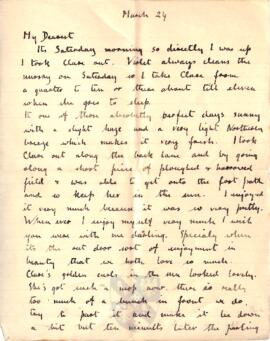 March 24
My Dearest
Its Saturday morning so directly I was up
I took Clare out. Violet always cleans the
nursery on Saturday so I take Clare from
a quarter to ten or there about till eleven
when she goes to sleep.
Its one of those absolutely perfect days sunny
with a slight haze and a very light Northern
breeze which makes it very fresh. I took
Clare out along the back lane and by going
along a short piece of ploughed & harrowed
field I was able to get onto the foot path
and so keep her in the sun. I enjoyed
it very much because it was so very pretty.
When ever I enjoy myself very much I wish
you were with me darling. Specialy when
its the out door sort of enjoyment in
beauty that we both love so much.
Clare's golden curls in the sun looked lovely.
She's got such a mop now. there is really
too much of a bunch in front we do,
try to part it and make it lie down
a bit but ten minutes later the parting